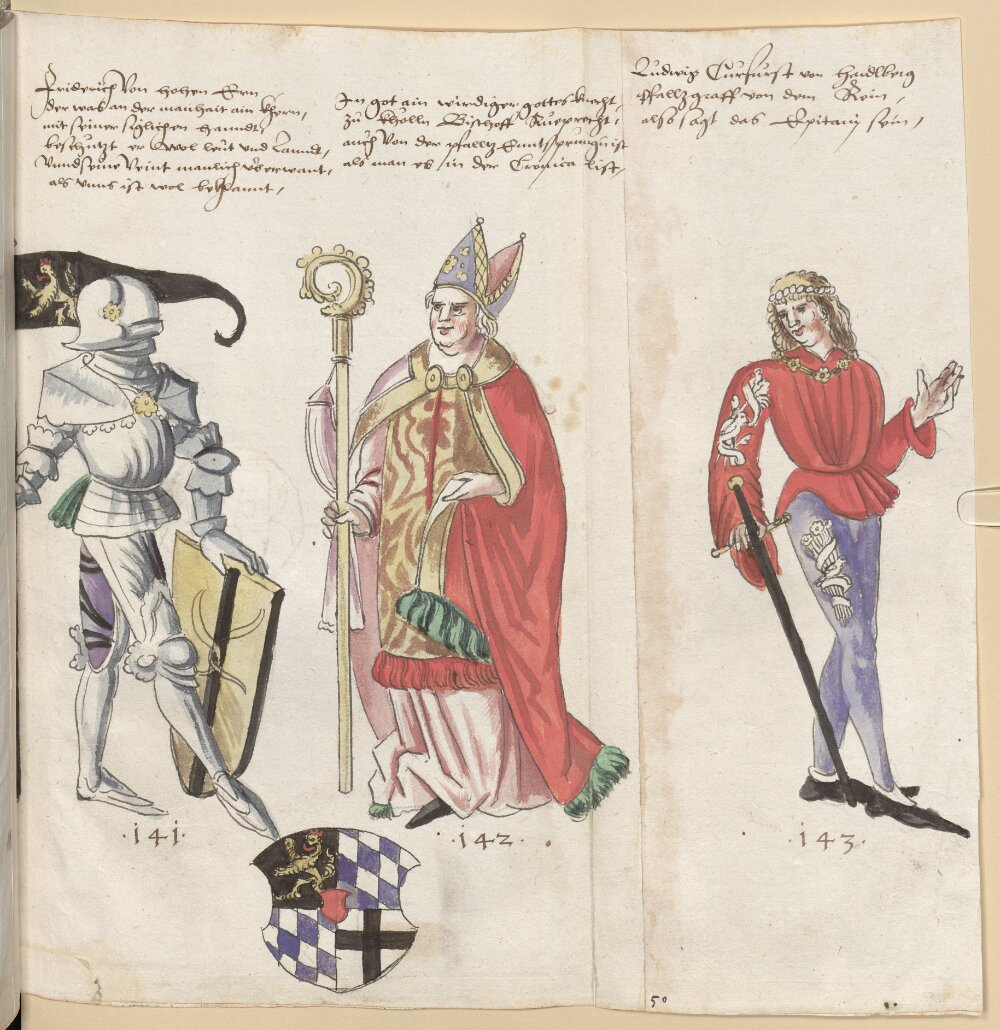 Friderich Von hohen Ern
der was an der manhait ain Khern,
mit seiner siglichen hanndt,
beschutzt er Wol leut und Lanndt,
Vnnd seine Veint manlich vberwant,
als vnns ist wol bekhannt,
In got ain wirdiger gottes knecht,
zu Khölln Bischoff Rueprecht,
auch Von der pfalltz Enntsprungn ist
als man es in der Cronica list,
Ludwig Curfurst von Haidlberg
Pfalltzgraff von dem Rein,
also sagt das Epitauj sein,
·141·
·142·
·143·
50